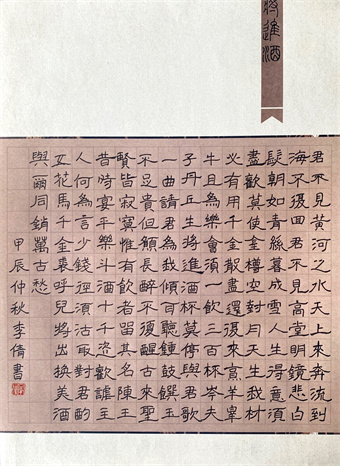 将進酒
君不見黃河之水天上來奔流到
海不復回君不見高堂明鏡悲白
髮朝如青絲暮成雪人生得意須
盡歡莫使金樽空對月天生我材
必有用千金散盡還復來烹羊宰
牛且為樂會須一飲三百杯岑夫
子丹丘生將進酒杯莫停與君歌
一曲請君為我傾耳聽鐘鼓饌玉
不足貴但願長醉不復醒古來聖
賢皆寂寞惟有飲者留其名陳王
昔時宴平樂斗酒十千恣歡謔主
人何為言少錢徑須沽取對君酌
五花馬千金裘呼兒將出換美酒
與爾同銷萬古愁
甲辰仲秋李倩書